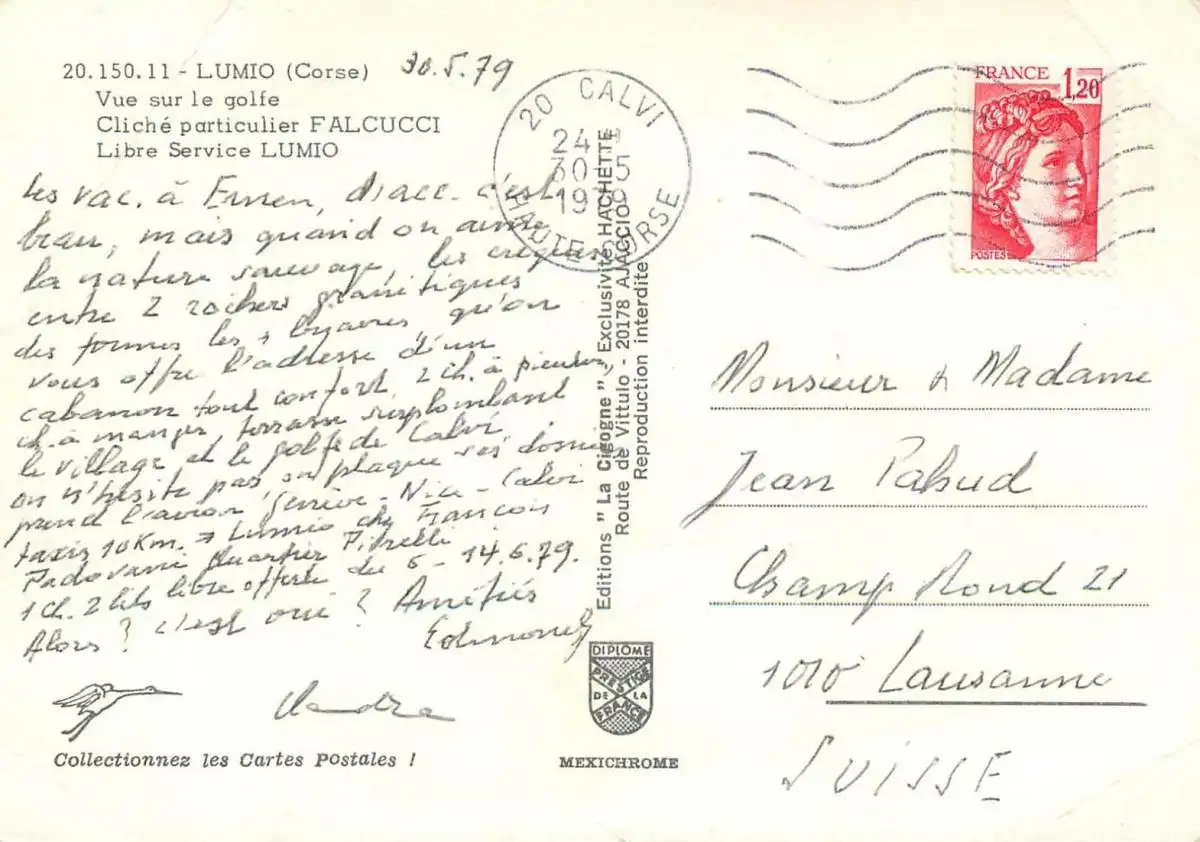 20.150.11 - LUMIO (Corse)
Vue sur le golfe
Cliché particulier FALCUCCI
Libre Service LUMIO
30.5.79
Les vac. à Ernen, d'acc. c'est
beau, mais quand on aime
la nature sauvage, les criques
entre 2 rochers granitiques
des formes les + bizarres, qu'on
vous offre l'adresse d'un
cabanon tout confort, 2 ch. à
ch. à manger, terrasse surplombant
le village et le golfe de Calvi
on n'hésite pas, on plaque ses
prend l'avion Genève - Nice - Calvi
taxis 10 Km. → Lumio chez François
Padovani Quartier
1 ch. 2 lits libre offerte du 6 - 14.6.79.
Alors ? c'est oui ? Amitiés
Edmond
Collectionnez les Cartes Postales !
20 CALVI
24 H
30-5
1979
HAUTE CORSE
Editions "La Cigogne", Exclusivité HACHETTE
Route de Vittulo - 20178 AJACCIO
Reproduction interdite
DIPLOME
PRESTIGE
DE LA
FRANCE
MEXICHROME
FRANCE 1,20
POSTES
Monsieur & Madame
Jean Pahud
Champ Rond 21
1010 Lausanne
SUISSE